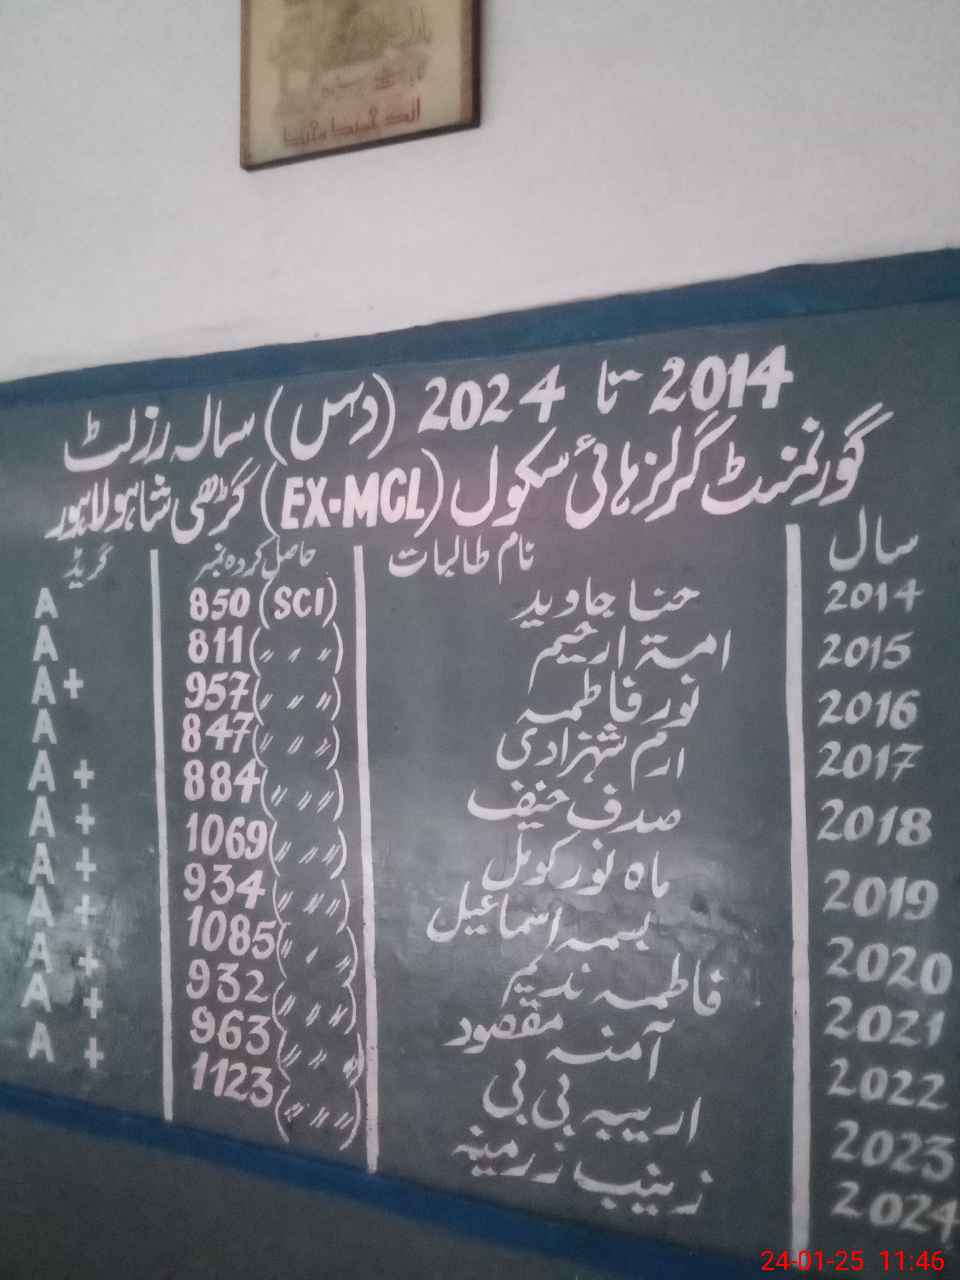 2014 تا 2024 (دس) سالہ رزلٹ
گورنمنٹ گرلز ہائی سکول (EX-MCL) گڑھی شاہو لاہور
سال نام طالبات حاصل کردہ نمبر گریڈ
2014 حنا جاوید 850 (SCI) A
2015 امۃ ارحیم 811 (〃 〃 〃) A
2016 نور فاطمہ 957 (〃 〃 〃) A+
2017 ارم شہزادی 847 (〃 〃 〃) A
2018 صدف حنیف 884 (〃 〃 〃) A +
2019 ماہ نور کومل 1069 (〃 〃 〃) A +
2020 بسمہ اسماعیل 934 (〃 〃 〃) A +
2021 فاطمہ ندیم 1085 (〃 〃 〃) A +
2022 آمنہ مقصود 932 (〃 〃 〃) A +
2023 اریبہ بی بی 963 (〃 〃 〃) A +
2024 زینب زرمینہ 1123 (〃 〃 〃) A +
24-01-25 11:46